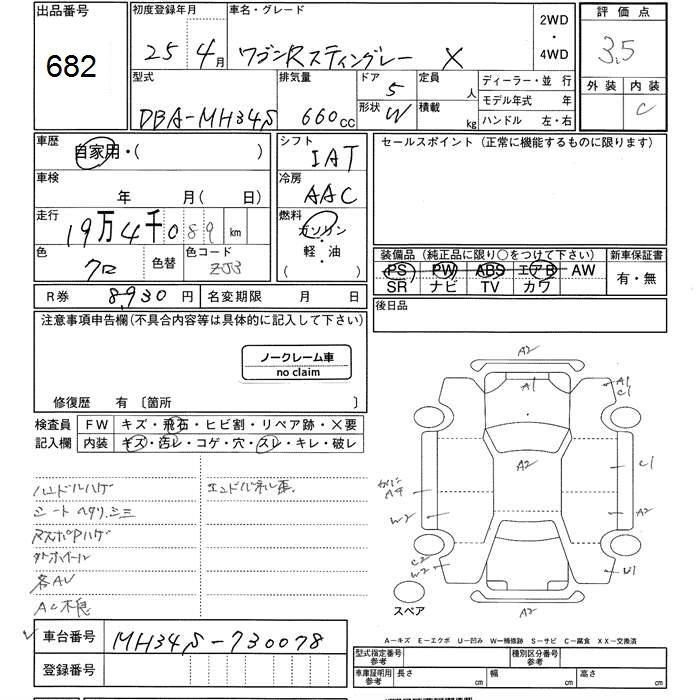 出品番号
682
初度登録年月
25 4月
車名・グレード
ワゴンRスティングレー X
2WD
・
4WD
評価点
3.5
外装 内装
C
型式
DBA-MH34S
排気量
660cc
ドア
5
形状 W
定員
人
積載
kg
ディーラー・並 行
モデル年式 年
ハンドル 左・右
車歴
自家用・( )
車検
年 月( 日)
走行
19万4千089 km
色
クロ
色替
色コード
ZJ3
シフト
IAT
冷房
AAC
燃料
ガソリン
・
軽・油
( )
セールスポイント (正常に機能するものに限ります)
装備品 (純正品に限り○をつけて下さい)
PS PW ABS エアB AW
SR ナビ TV カワ
新車保証書
有・無
R券 8,930円
名変期限 月 日
後日品
注意事項申告欄(不具合内容等は具体的に記入して下さい)
ノークレーム車
no claim
修復歴 有 〔箇所 〕
検査員
記入欄
FW キズ・飛石・ヒビ割・リペア跡・X要
内装 キズ・汚レ・コゲ・穴・スレ・キレ・破レ
ハンドルハゲ
シートヘタリ、シミ
外ホイール
各AU
AC不良
エンドパネル歪
A2
A1
A1
C1
A2
C1
A4
W2
A2
C2
W2
U1
A2
スペア
A-キズ E-エクボ U-凹み W-補修跡 S-サビ C-腐食 XX-交換済
車台番号 MH34S-730078
登録番号
型式指定番号
参考
種別区分番号
参考
車庫証明用
参考
長さ cm
幅 cm
高さ cm